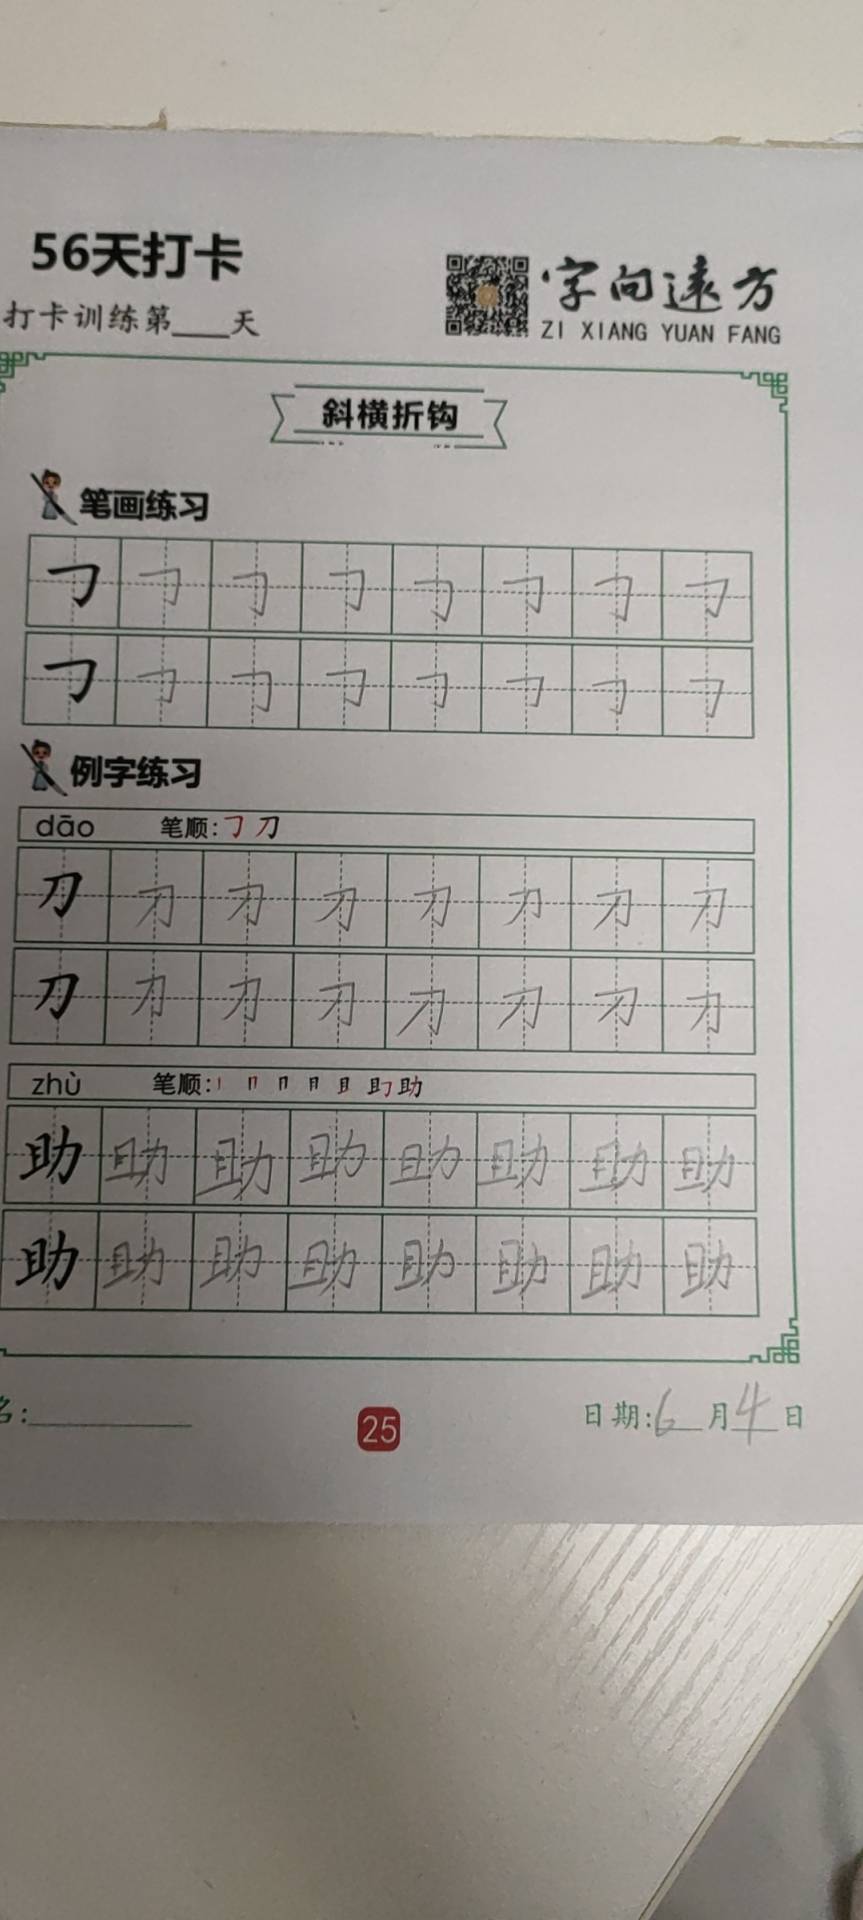 56天打卡
打卡训练第___天
字向远方
ZI XIANG YUAN FANG
斜横折钩
笔画练习
㇆ ㇆ ㇆ ㇆ ㇆ ㇆ ㇆ ㇆
㇆ ㇆ ㇆ ㇆ ㇆ ㇆ ㇆ ㇆
例字练习
dāo 笔顺:㇆ 刀
刀 刀 刀 刀 刀 刀 刀 刀
刀 刀 刀 刀 刀 刀 刀 刀
zhù 笔顺: 助
助 助 助 助 助 助 助 助
助 助 助 助 助 助 助 助
名:
25
日期:6月4日